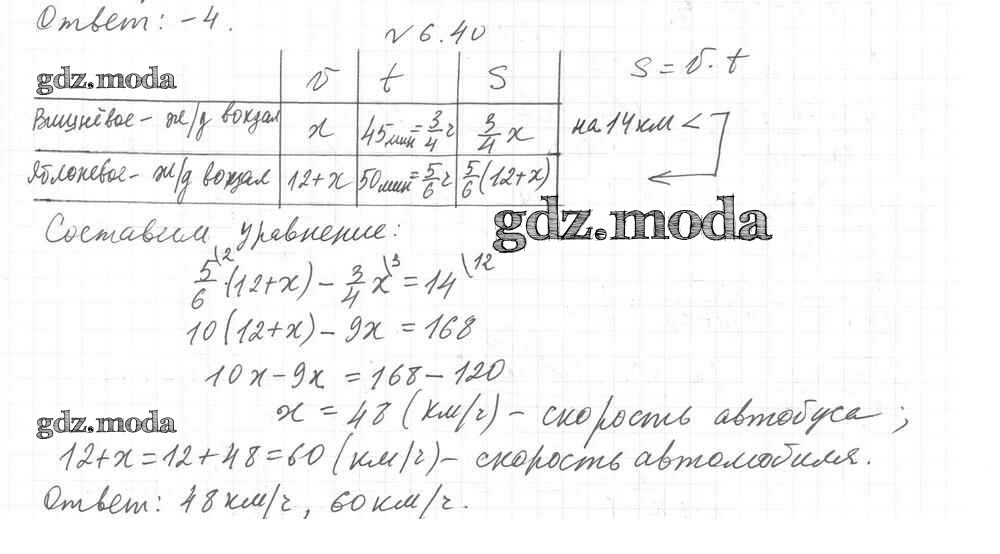 Ответ: -4.
№6.40
gdz.moda
v t S
S = v · t
Вишнёвое - ж/д вокзал x 45мин = 3/4 ч 3/4 x на 14 км <
Яблоневое - ж/д вокзал 12+x 50мин = 5/6 ч 5/6 (12+x)
gdz.moda
Составим уравнение:
5/6 \2 · (12+x) - 3/4 x \3 = 14 \12
10(12+x) - 9x = 168
10x - 9x = 168 - 120
gdz.moda
x = 48 (км/ч) - скорость автобуса;
12+x = 12+48 = 60 (км/ч) - скорость автомобиля.
Ответ: 48 км/ч, 60 км/ч.